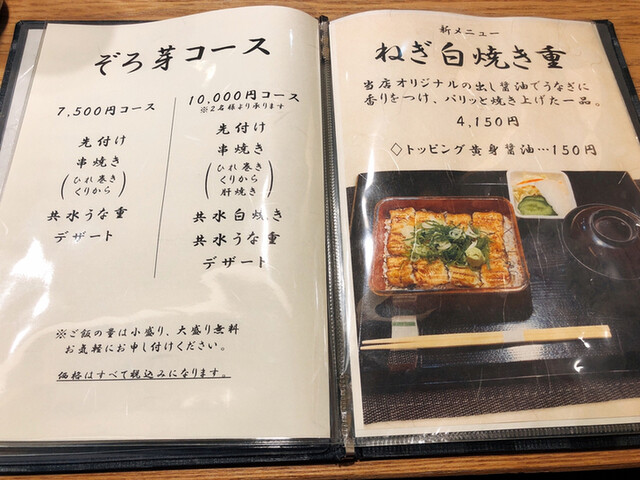 ぞろ芽コース
7,500円コース
先付け
串焼き
(ひれ巻き
くりから)
共水うな重
デザート
10,000円コース
※2名様より承ります
先付け
串焼き
(ひれ巻き
くりから
肝焼き)
共水白焼き
共水うな重
デザート
※ご飯の量は小盛り、大盛り無料
お気軽にお申し付けください。
価格はすべて税込みになります。
新メニュー
ねぎ白焼き重
当店オリジナルの出し醤油でうなぎに
香りをつけ、パリッと焼き上げた一品。
4,150円
◇トッピング黄身醤油…150円